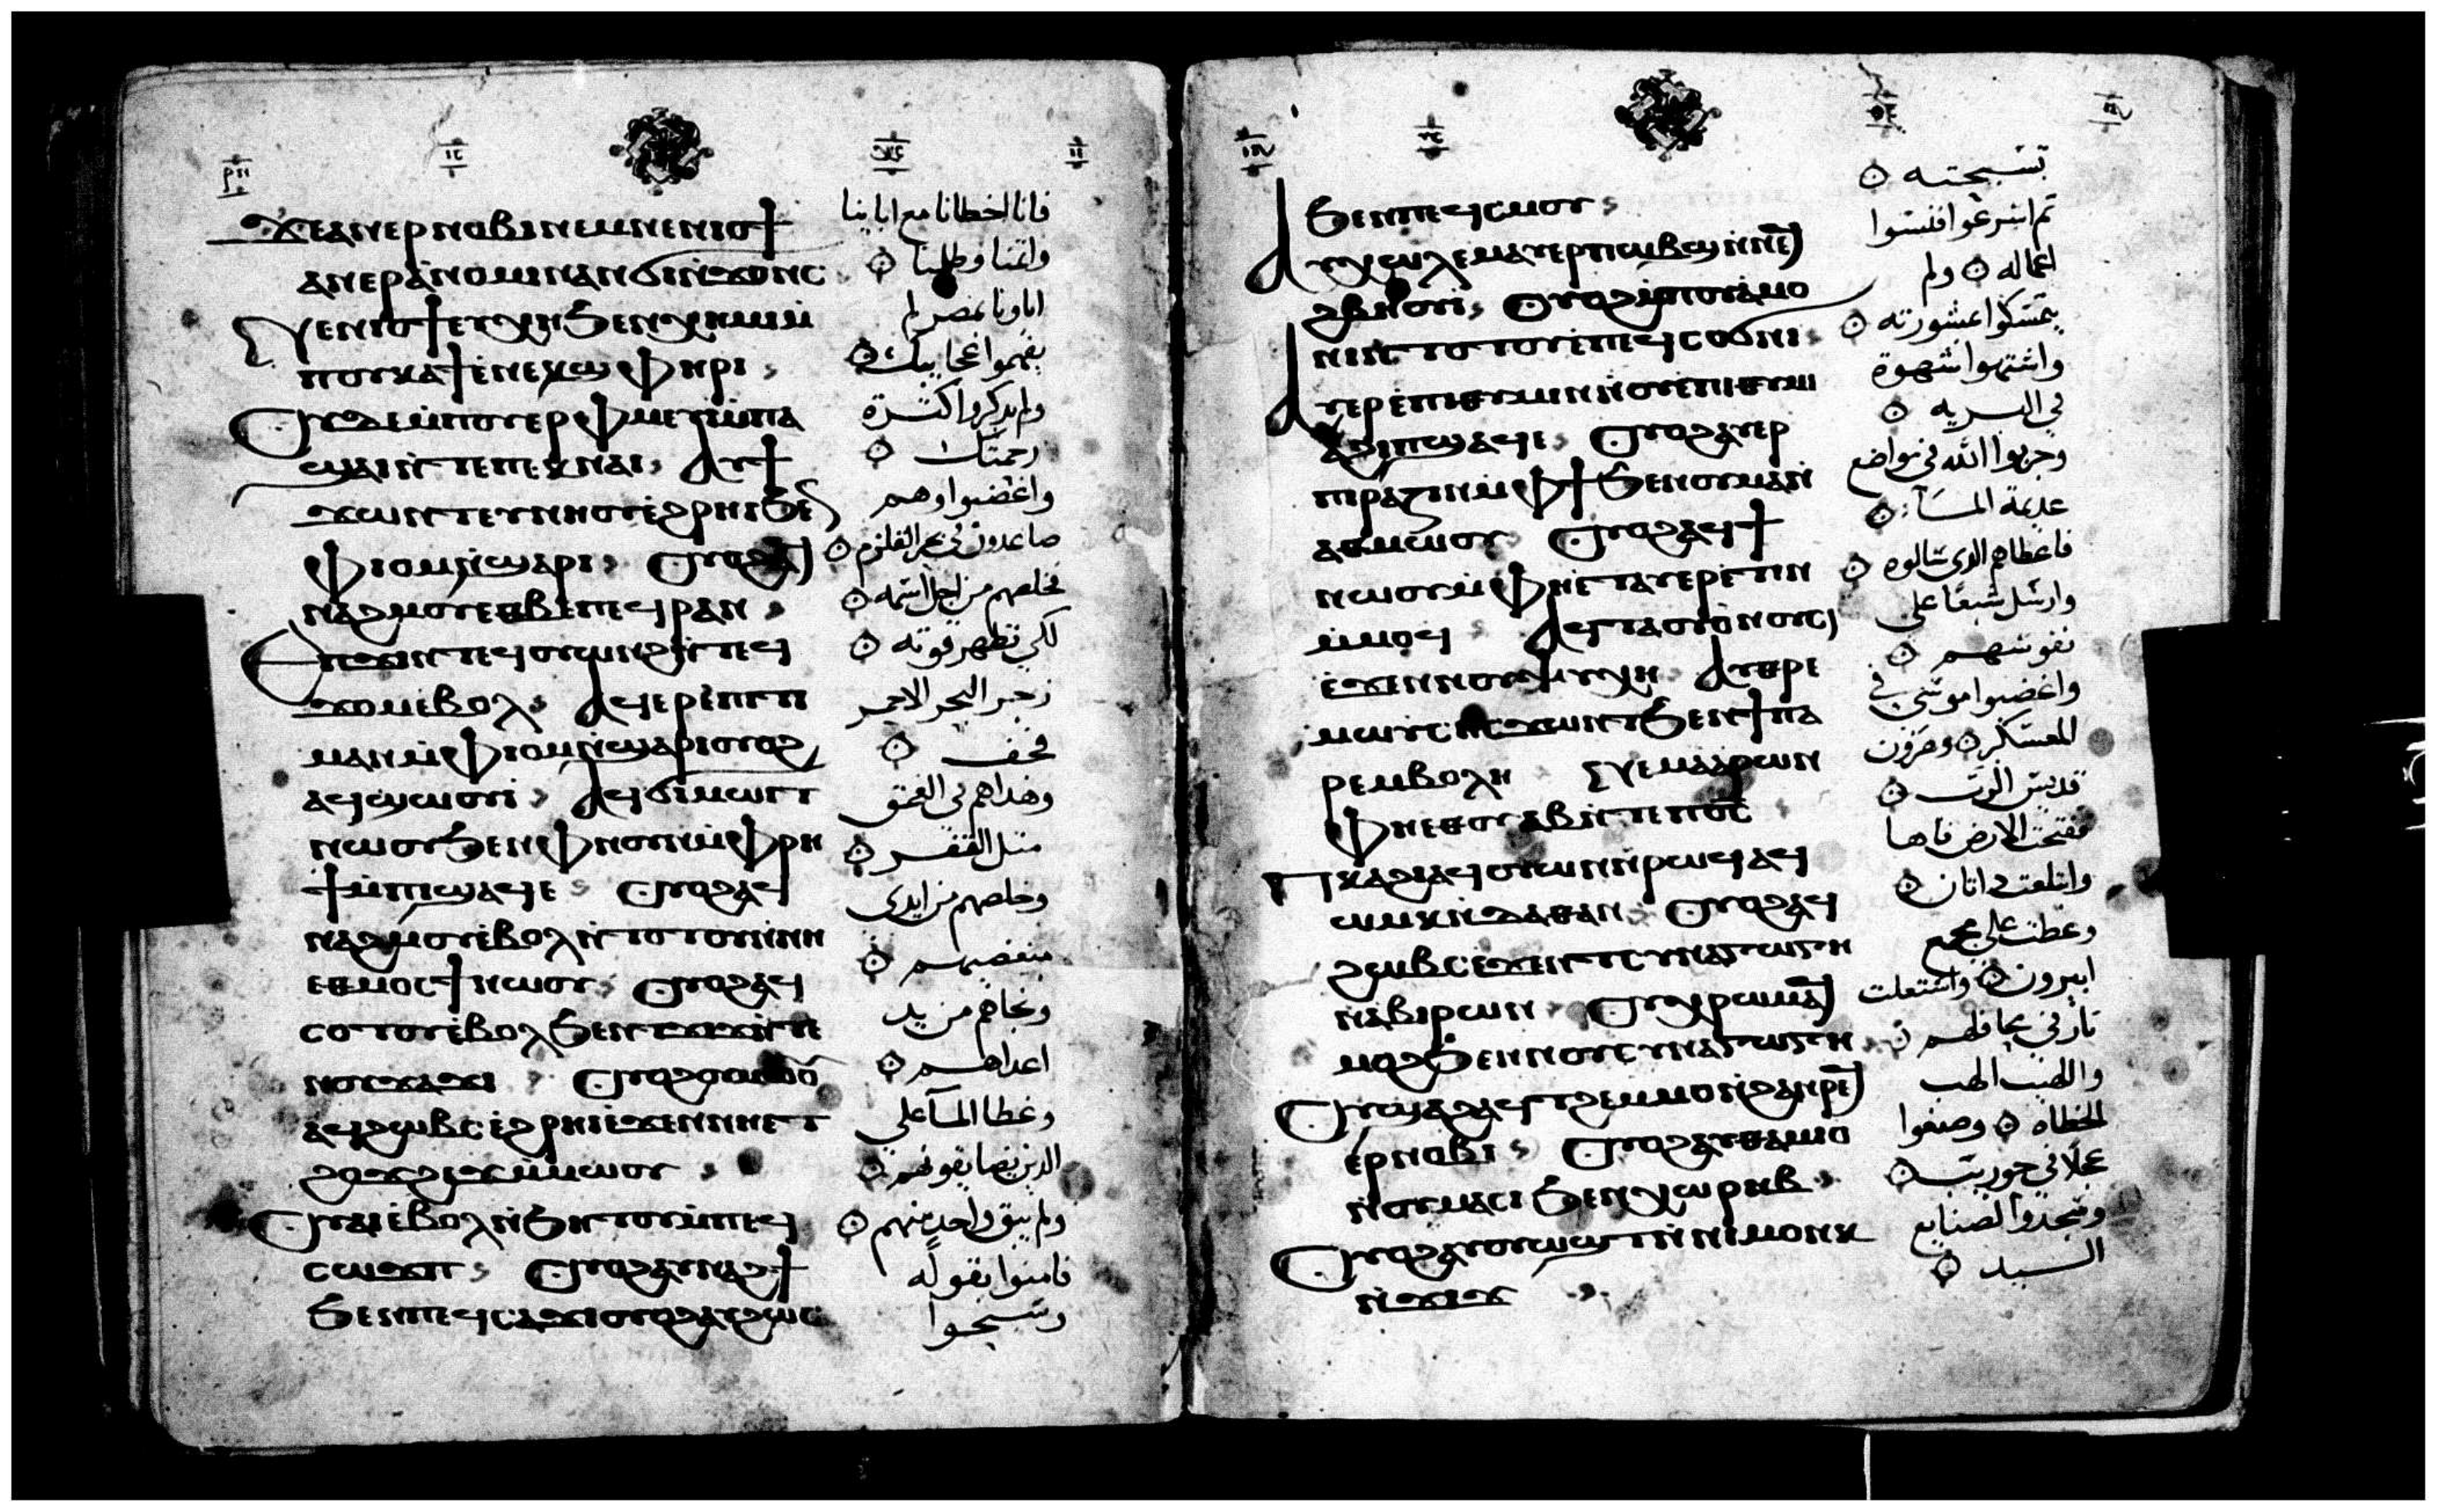 ϫⲉⲁⲛⲉⲣⲛⲟⲃⲓⲛⲉⲙⲛⲉⲛⲓⲟϯ
ⲁⲛⲉⲣⲁ̀ⲛⲟⲙⲓⲛⲁⲛϭⲓⲛ̀ϫⲟⲛⲥ
Ⲛⲉⲛⲓⲟϯⲉⲧⲭⲏϧⲉⲛⲭⲏⲙⲓⲙ̀
ⲡⲟⲩⲕⲁϯⲉ̀ⲛⲉⲕϣⲫⲏⲣⲓ
Ⲟⲩⲇⲉⲙ̀ⲡⲟⲩⲉⲣⲫⲙⲉⲩⲓ̀ⲙ̀ⲡⲁ
ϣⲁⲓⲛ̀ⲧⲉⲡⲉⲕⲛⲁⲓ Ⲁⲩϯ
ϫⲱⲛⲧⲉⲩⲛⲏⲟⲩⲉ̀ϩⲣⲏⲓϧⲉⲛ
ⲫⲓⲟⲙⲛ̀ϣⲁⲣⲓ Ⲟⲩⲟϩⲁϥ
ⲛⲁϩⲙⲟⲩⲉⲑⲃⲉⲡⲉϥⲣⲁⲛ
Ⲉⲡϫⲓⲛⲧⲉϥⲟⲩⲱⲛϩⲛ̀ⲧⲉϥ
ϫⲟⲙⲉ̀ⲃⲟⲗ Ⲁϥⲉⲣⲉ̀ⲡⲓⲧⲓ
ⲙⲁⲛⲙ̀ⲫⲓⲟⲙⲛ̀ϣⲁⲣⲓⲟⲩⲟϩ
ⲁϥϣⲱⲟⲩⲓ̀ Ⲁϥϭⲓⲙⲱⲓⲧ
ⲛⲱⲟⲩϧⲉⲛⲫⲛⲟⲩⲛⲙ̀ⲫⲣⲏ
ϯⲙ̀ⲡϣⲁϥⲉ Ⲟⲩⲟϩⲁϥ
ⲛⲁϩⲙⲟⲩⲉ̀ⲃⲟⲗⲛ̀ⲧⲟⲧⲟⲩⲛ̀ⲛⲏ
ⲉⲑⲙⲟⲥϯⲛⲱⲟⲩ Ⲟⲩⲟϩⲁϥ
ⲥⲟⲧⲧⲟⲩⲉ̀ⲃⲟⲗϧⲉⲛⲧϫⲓϫⲛ̀ⲧⲉ
ⲛⲟⲩϫⲁϫⲓ Ⲟⲩⲟϩⲟⲩⲙⲱⲟⲩ
ⲁϥϩⲱⲃⲥⲉ̀ϩⲣⲏⲓⲉ̀ϫⲉⲛⲛⲏⲉⲧ
ϩⲟϫϩⲉϫⲙ̀ⲙⲱⲟⲩ
Ⲟⲩⲁⲓⲉ̀ⲃⲟⲗⲛ̀ϧⲏⲧⲟⲩⲙ̀ⲡⲉϥ
ⲥⲱϫⲡ Ⲟⲩⲟϩⲁⲩⲛⲁϩϯ
ϧⲉⲛⲡⲉϥⲥⲁϫⲓⲟⲩⲟϩⲁⲩϩⲱⲥ
فاننا اخطانا مع ابائنا
واثمنا وظلمنا
اباونا بمصر لم
يفهموا عجايبك
ولم يذكروا كثرة
رحمتك
واغضبوا وهم
صاعدون في بحر القلزم
فخلصهم من اجل اسمه
لكي تظهر قوته
زجر البحر الاحمر
فجف
وهداهم في العمق
مثل القفر
وخلصهم من ايدي
مبغضيهم
ونجاهم من يد
اعداهم
وغطا الما على
الذين يضايقونهم
ولم يبق واحد منهم
فامنوا بقوله
وسبحوا
ϧⲉⲛⲡⲉϥⲥⲙⲟⲩ
Ⲁⲩⲭⲱⲗⲉⲙⲁⲩⲉⲣⲡⲱⲃϣⲛ̀ⲛⲉϥ
ϩⲃⲏⲟⲩⲓ̀ Ⲟⲩⲟϩⲙ̀ⲡⲟⲩⲁ̀ⲙⲟ
ⲛⲓⲛ̀ⲧⲟⲧⲟⲩⲙ̀ⲡⲉϥⲥⲟϭⲛⲓ
Ⲁⲩⲉⲣⲉ̀ⲡⲓⲑⲩⲙⲓⲛ̀ⲟⲩⲉ̀ⲡⲓⲑⲩⲙⲓ
ⲁϩⲓⲡϣⲁϥⲉ Ⲟⲩⲟϩⲁⲩⲉⲣ
ⲡⲓⲣⲁⲍⲓⲛⲙ̀ⲫϯϧⲉⲛⲟⲩⲙⲁⲛ̀
ⲁⲑⲙⲱⲟⲩ Ⲟⲩⲟϩⲁϥϯ
ⲛⲱⲟⲩⲙ̀ⲫⲏⲉ̀ⲧⲁⲩⲉⲣⲉ̀ⲧⲓⲛ
ⲙ̀ⲙⲟϥ Ⲁϥⲧⲁⲟⲩⲟ̀ⲛⲟⲩⲥⲓ
ⲉ̀ϫⲉⲛⲛⲟⲩⲯⲩⲭⲏ Ⲁⲩⲑⲣⲉ
ⲙⲱⲩⲥⲏⲥϫⲱⲛⲧϧⲉⲛϯⲡⲁ
ⲣⲉⲙⲃⲟⲗⲏ Ⲛⲉⲙⲁ̀ⲁⲣⲱⲛ
ⲫⲏⲉⲑⲟⲩⲁⲃⲛ̀ⲧⲉⲡⲟ̅ⲥ̅
Ⲡⲕⲁϩⲓⲁϥⲟⲩⲱⲛⲛ̀ⲣⲱϥⲁϥ
ⲱⲙⲕⲛ̀ⲇⲁⲑⲁⲛ Ⲟⲩⲟϩⲁϥ
ϩⲱⲃⲥⲉ̀ϫⲉⲛⲧⲥⲩⲛⲁⲅⲱⲅⲏ
ⲛⲁⲃⲓⲣⲱⲛ Ⲟⲩⲭⲣⲱⲙⲁϥ
ⲙⲟϩϧⲉⲛⲛⲟⲩⲥⲩⲛⲁⲅⲱⲅⲏ
Ⲟⲩϣⲁϩⲁϥⲣⲱⲕϩⲛ̀ϩⲁⲛⲣⲉϥ
ⲉⲣⲛⲟⲃⲓ Ⲟⲩⲟϩⲁⲩⲑⲁⲙⲓⲟ
ⲛ̀ⲟⲩⲙⲁⲥⲓϧⲉⲛⲭⲱⲣⲏⲃ
Ⲟⲩⲟϩⲁⲩⲟⲩⲱϣⲧⲛ̀ⲛⲓⲙⲟⲩⲛⲕ
ⲛ̀ϫⲓϫ
تسبحته
ثم اسرعوا فنسوا
اعماله ولم
يتمسكوا بمشورته
واشتهوا شهوة
في البريه
وجربوا الله في مواضع
عديمة الماء
فاعطاهم الذي سالوه
وارسل شبعا على
نفوسهم
واغضبوا موسى في
المعسكر وهرون
قديس الرب
ففتحت الارض فاها
وابتلعت داثان
وغطت على مجمع
ابيرون واشتعلت
نار في محافلهم
واللهيب الهب
الخطاه وصنعوا
عجلا في حوريب
وسجدوا لصنايع
اليد